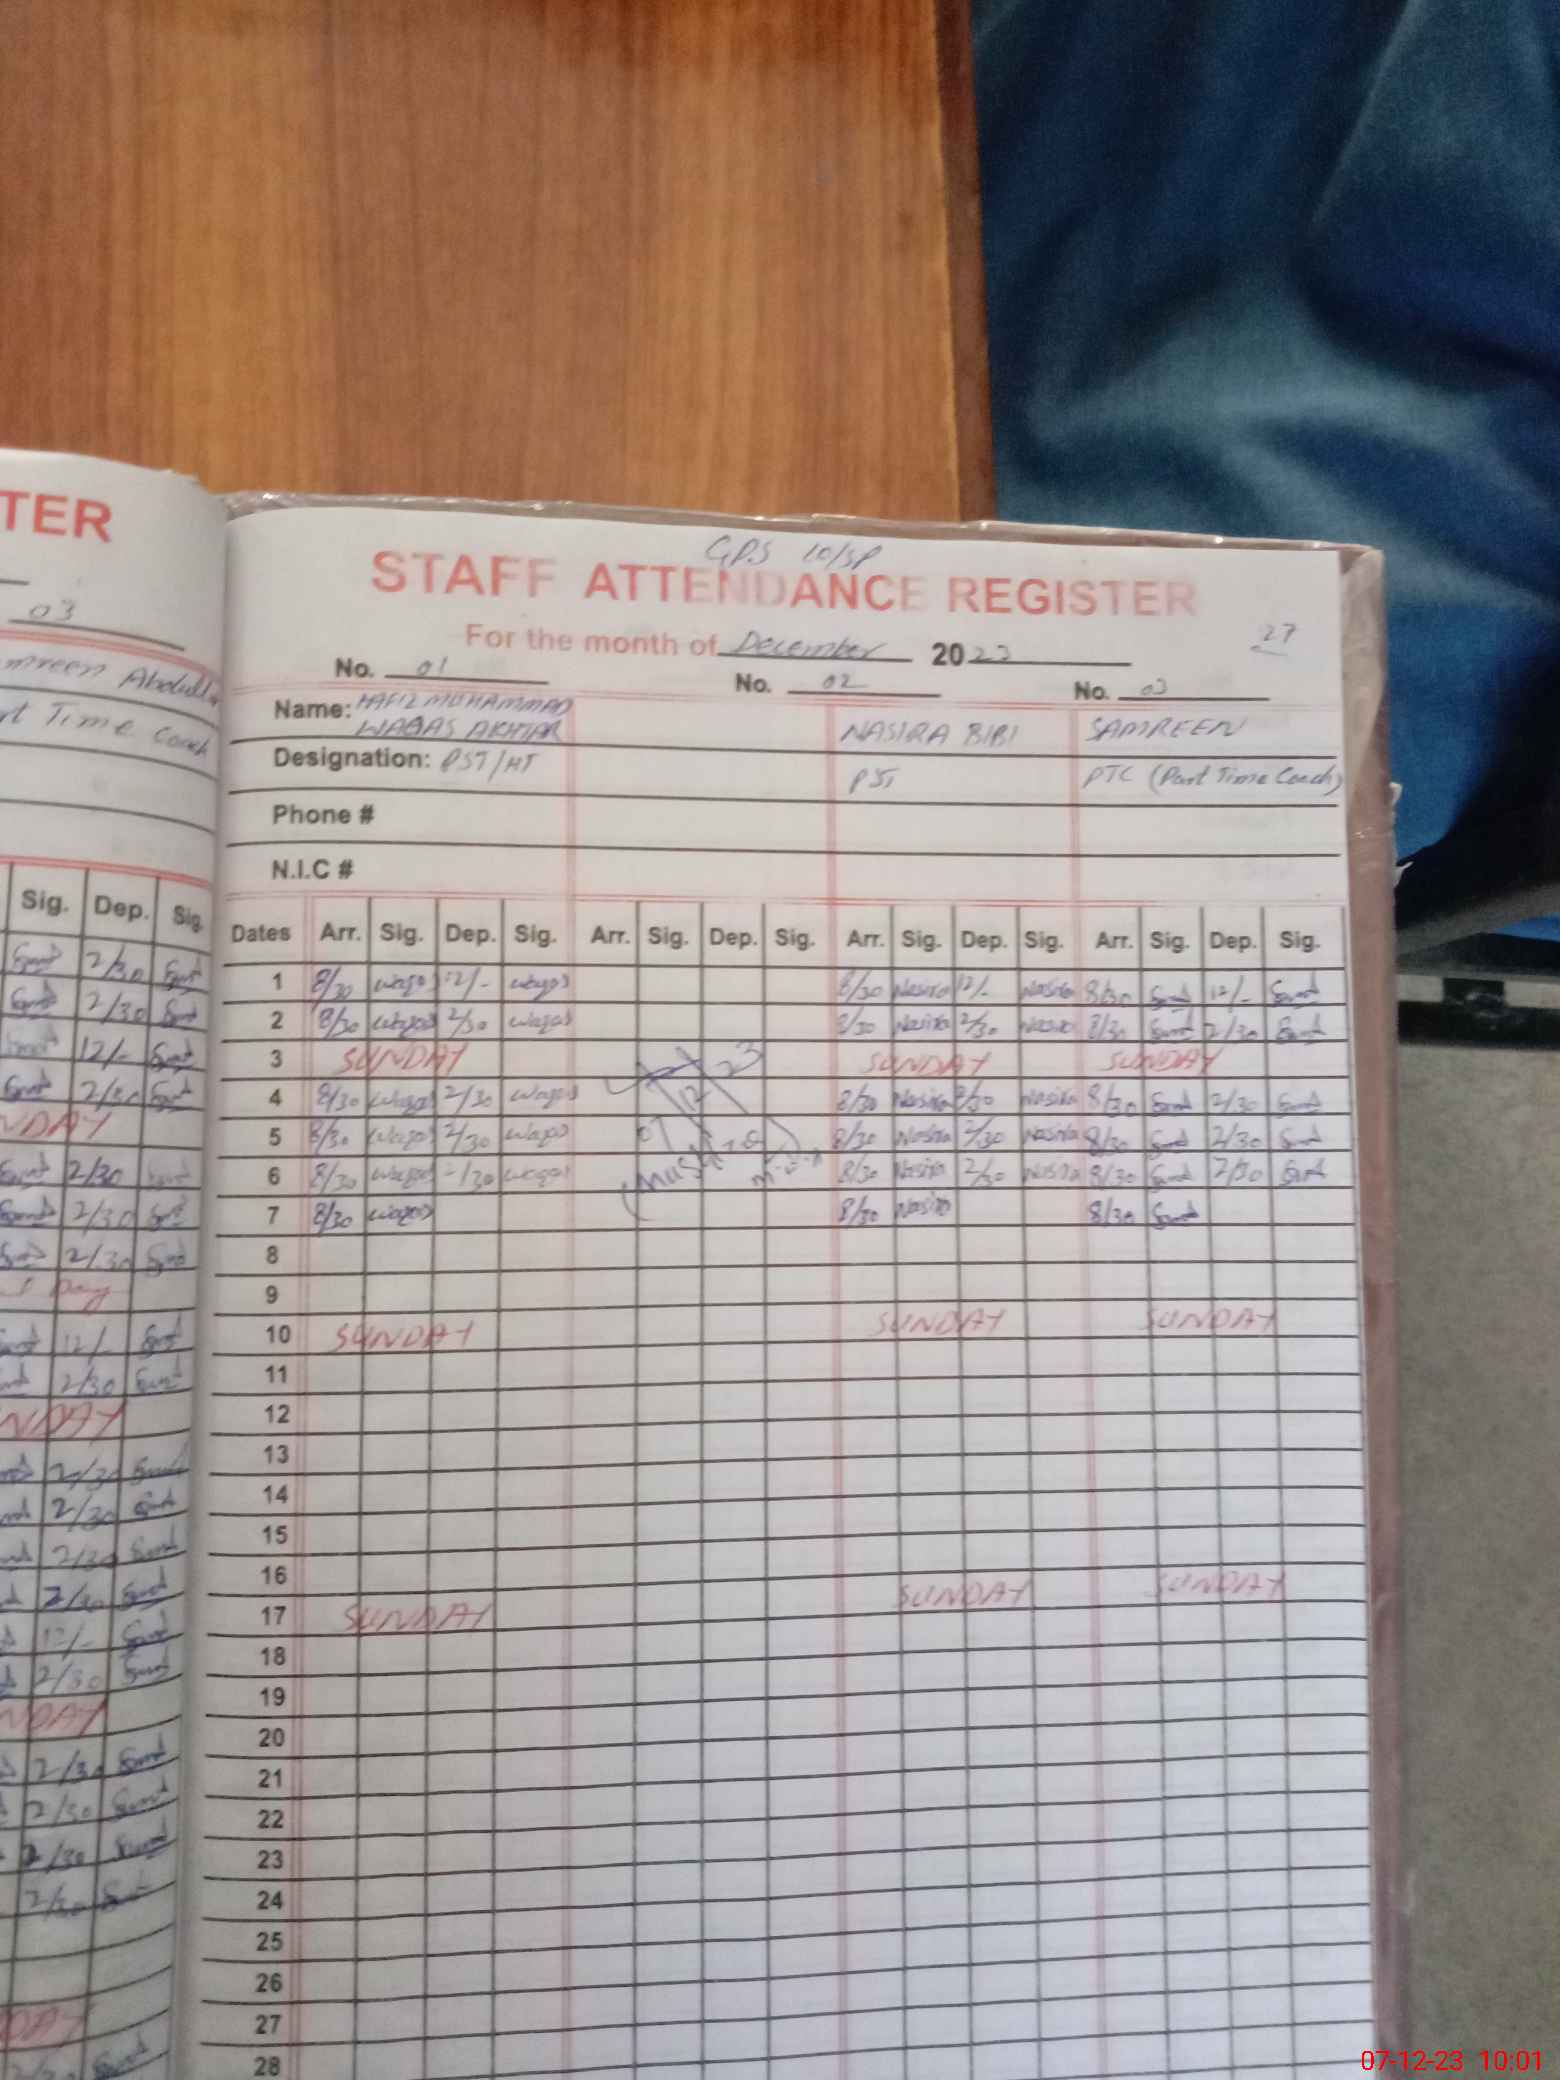 TER
03
mreen Abdull
rt Time Coach
Sig. Dep. Sig.
2/30
2/30
12/-
2/30
NDAY
2/30
2/30
2/30
Day
12/-
2/30
NDAY
2/30
2/30
2/30
2/30
12/-
2/30
NDAY
2/30
2/30
2/30
2/30
DAY
GPS 10/SP
STAFF ATTENDANCE REGISTER
27
For the month of December 2023
No. 01 No. 02 No. 03
Name: HAFIZ MUHAMMAD
WAQAS AKHTAR NASIRA BIBI SAMREEN
Designation: PST/HT PST PTC (Part Time Coach)
Phone #
N.I.C #
Dates Arr. Sig. Dep. Sig. Arr. Sig. Dep. Sig. Arr. Sig. Dep. Sig. Arr. Sig. Dep. Sig.
1 8/30 Waqas 12/- Waqas 8/30 Nasira 12/- Nasira 8/30 12/-
2 8/30 Waqas 2/30 Waqas 8/30 Nasira 2/30 Nasira 8/30 2/30
3 SUNDAY SUNDAY SUNDAY
4 8/30 Waqas 2/30 Waqas 8/30 Nasira 2/30 Nasira 8/30 2/30
5 8/30 Waqas 2/30 Waqas 8/30 Nasira 2/30 Nasira 8/30 2/30
6 8/30 Waqas 2/30 Waqas 8/30 Nasira 2/30 Nasira 8/30 2/30
7 8/30 Waqas 8/30 Nasira 8/30
07 12 23
8
9
10 SUNDAY SUNDAY SUNDAY
11
12
13
14
15
16
17 SUNDAY SUNDAY SUNDAY
18
19
20
21
22
23
24
25
26
27
28
07-12-23 10:01